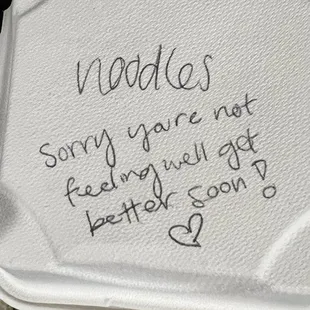 noodles
sorry you're not
feeling well get
better soon!
♡